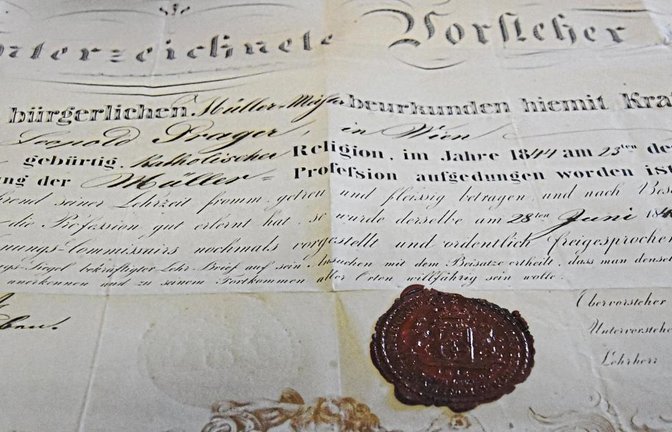 nterzeichnete Vorsteher
bürgerlichen Müller-Meister beurkunden hiemit Kraf
Leopold Prager, in Wien
gebürtig, katholischer Religion, im Jahre 1844 am 23ten de
ung der Müller- Profession aufgedungen worden ist
rend seiner Lehrzeit fromm, getreu und fleissig betragen, und nach
die Profession gut erlernt hat, so wurde derselbe am 28ten Juni 184
nungs-Commissärs nochmals vorgestellt und ordentlich freigesprochen
gs-Siegel bekräftigter Lehr-Brief auf sein Ansuchen mit dem Beisatze ertheilt, dass man densel
anerkennen und zu seinem Fortkommen aller Orten willfährig sein wolle.
Obervorsteher
Untervorsteher
Lehrherr